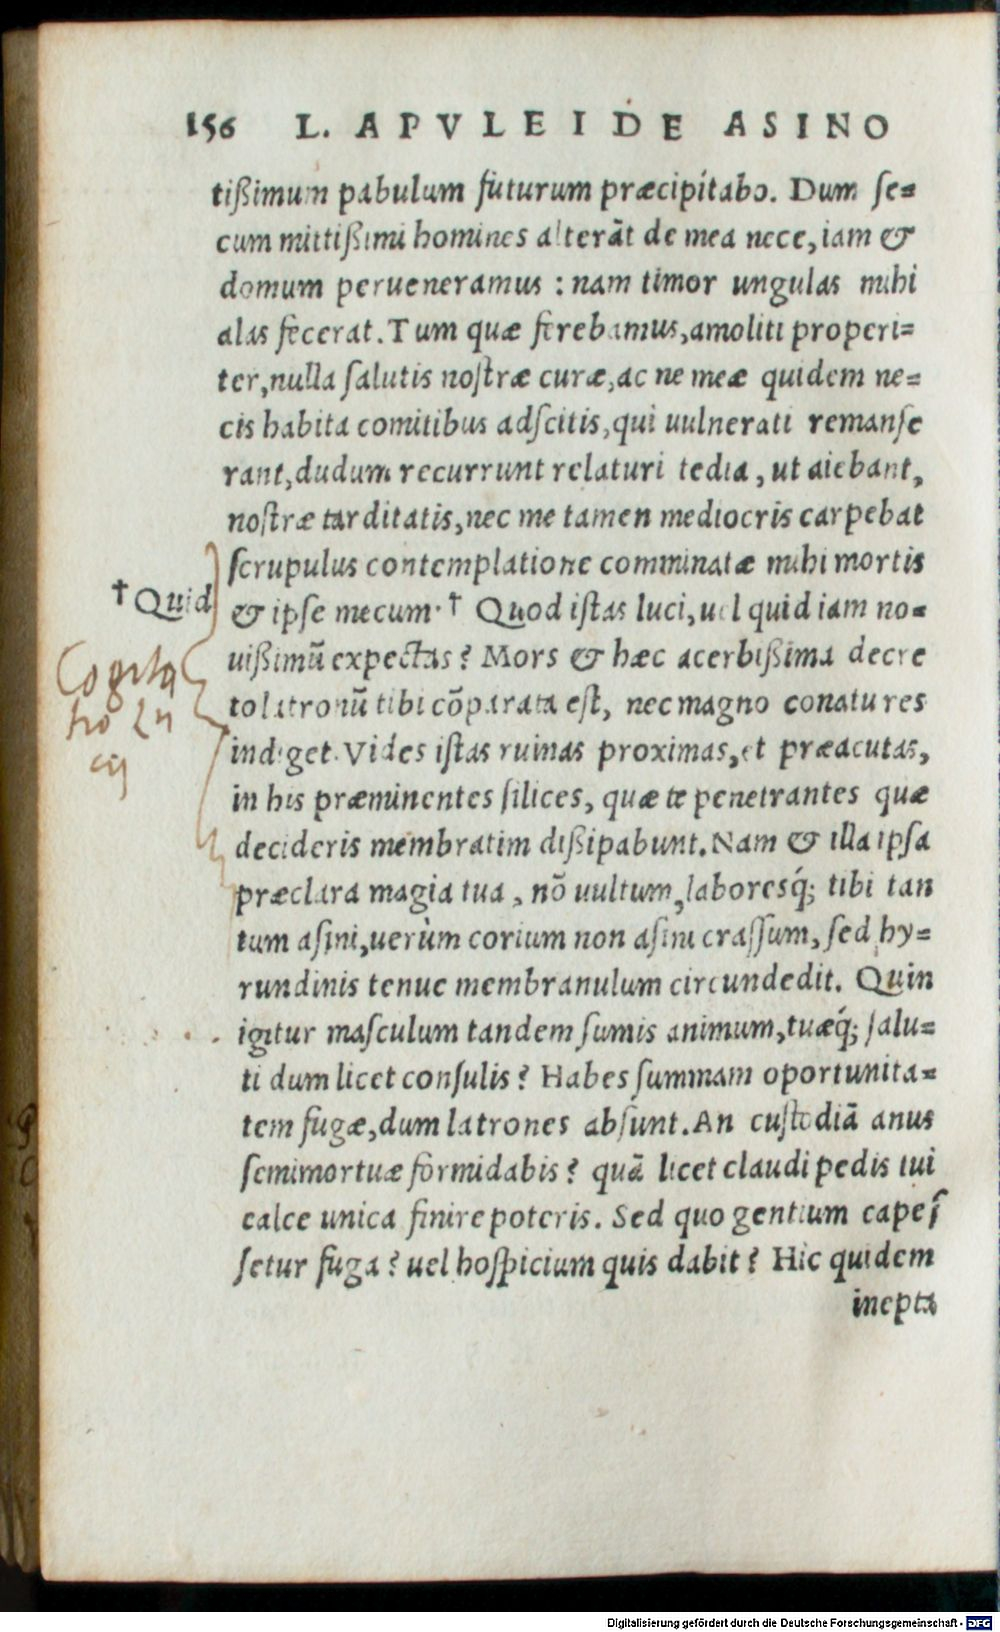 156 L. APVLEI DE ASINO
tißimum pabulum futurum præcipitabo. Dum se=
cum mittißimi homines alterāt de mea nece, iam &
domum perueneramus : nam timor ungulas mihi
alas fecerat. Tum quæ ferebamus, amoliti properi=
ter, nulla salutis nostræ curæ, ac ne meæ quidem ne=
cis habita comitibus adscitis, qui uulnerati remanse
rant, dudum recurrunt relaturi tedia, ut aiebant,
nostræ tarditatis, nec me tamen mediocris carpebat
scrupulus contemplatione comminatæ mihi mortis
† Quid
& ipse mecum. † Quod istas luci, uel quid iam no=
uißimū expectas? Mors & hæc acerbißima decre
to latronū tibi cōparata est, nec magno conatu res
indiget. Vides istas ruinas proximas, et præacutas,
in his præminentes silices, quæ te penetrantes quæ
decideris membratim dißipabunt. Nam & illa ipsa
præclara magia tua, nō uultum, laboresq́; tibi tan
tum asini, uerùm corium non asini crassum, sed hy=
rundinis tenue membranulum circundedit. Quin
igitur masculum tandem sumis animum, tuæq́; salu=
ti dum licet consulis? Habes summam oportunita=
tem fugæ, dum latrones absunt. An custodiā anus
semimortuæ formidabis? quā licet claudi pedis tui
calce unica finire poteris. Sed quo gentium capes
setur fuga? uel hospicium quis dabit? Hic quidem
inepta
Cogita
tio Lu
cij
Digitalisierung gefördert durch die Deutsche Forschungsgemeinschaft - DFG